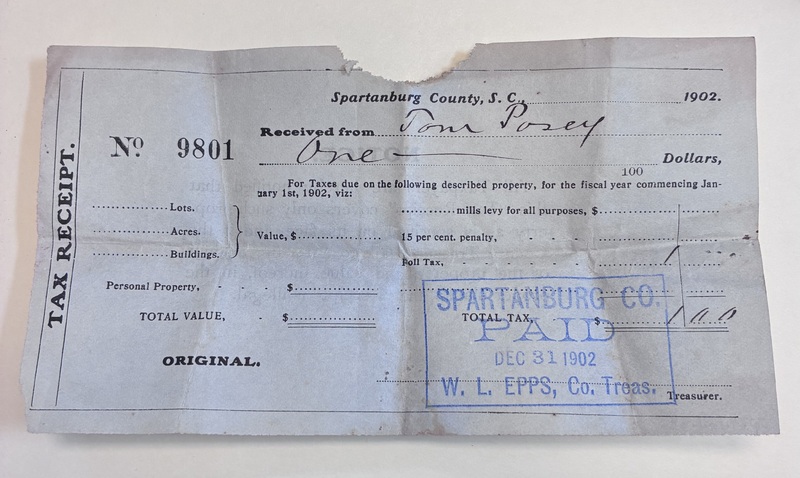 TAX RECEIPT.
Spartanburg County, S. C., 1902.
Nº 9801
Received from Tom Posey
One — Dollars,
100
For Taxes due on the following described property, for the fiscal year commencing Jan-
uary 1st, 1902, viz:
Lots.
Acres.
Buildings.
Value, $
mills levy for all purposes, $
15 per cent. penalty, - - -
Poll Tax, - - - - - - 1
Personal Property, - - $
TOTAL VALUE, - $
TOTAL TAX, $ 1 00
ORIGINAL.
SPARTANBURG CO.
PAID
DEC 31 1902
W. L. EPPS, Co. Treas.
Treasurer.